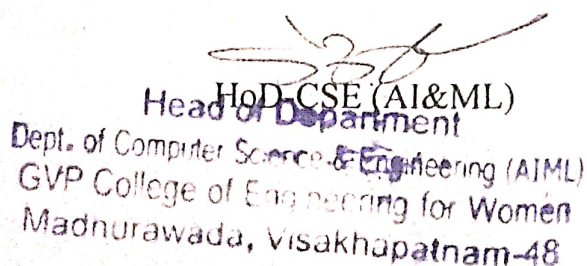 HoD-CSE (AI&ML)
Head of Department
Dept. of Computer Science & Engineering (AIML)
GVP College of Engineering for Women
Madhurawada, Visakhapatnam-48